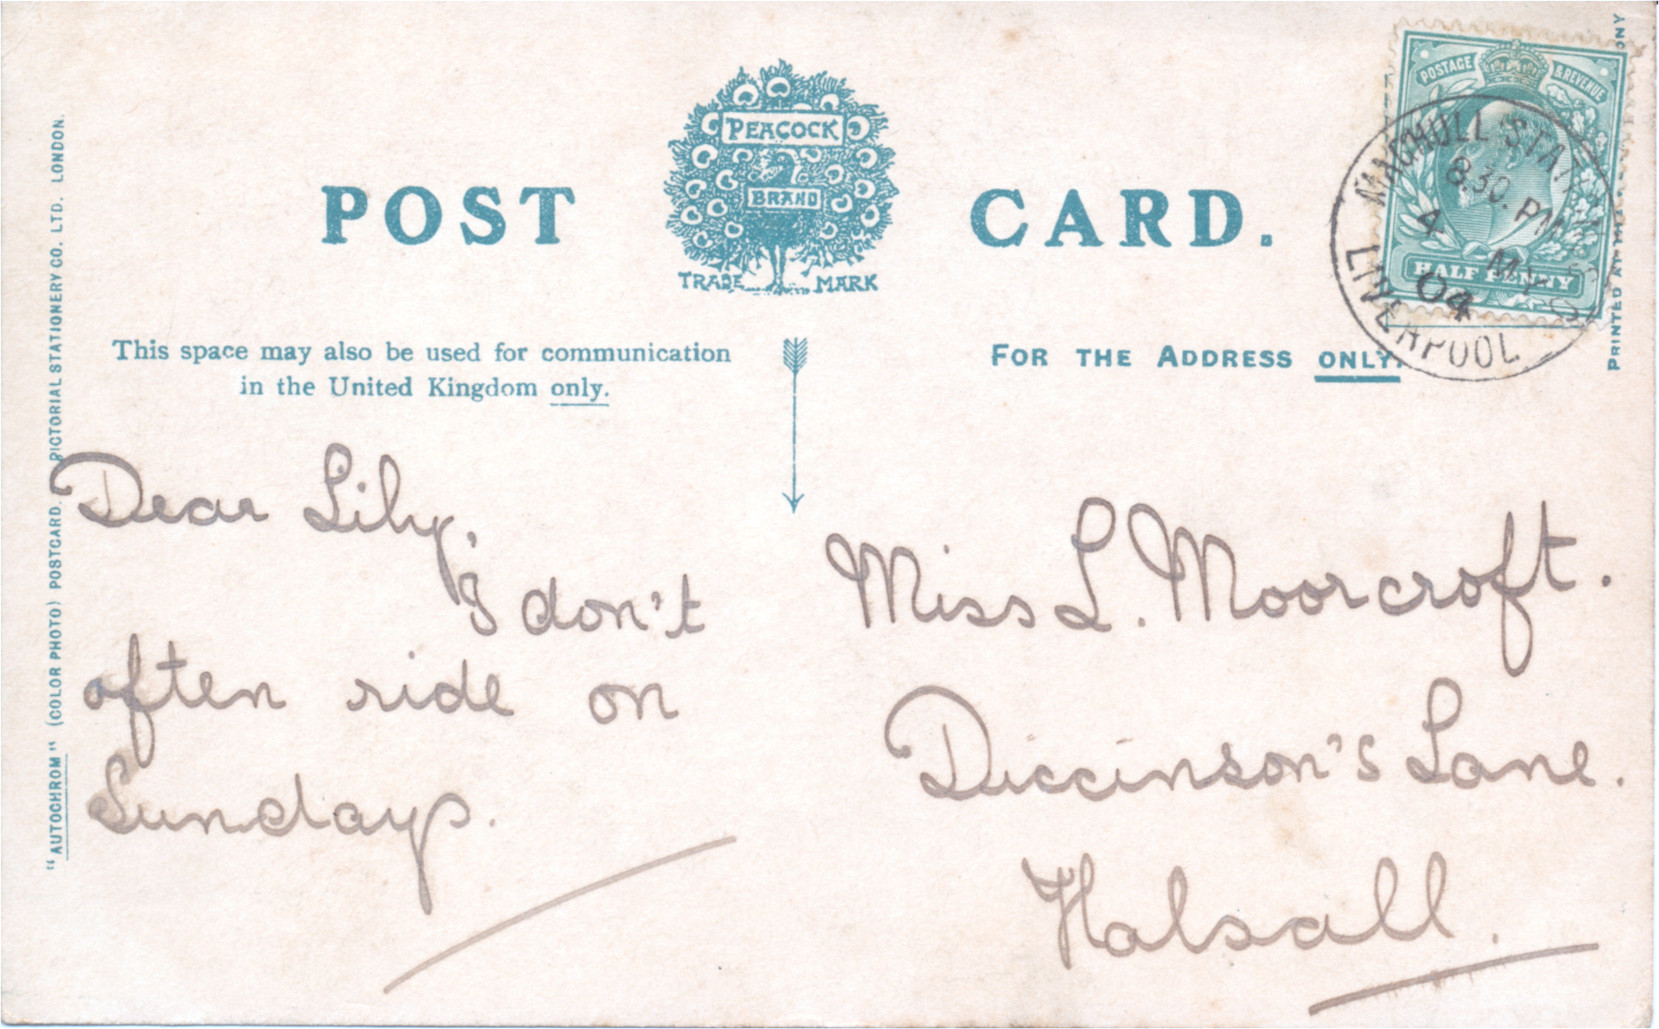 POST CARD.
PEACOCK
BRAND
TRADE MARK
This space may also be used for communication
in the United Kingdom only.
FOR THE ADDRESS ONLY.
POSTAGE & REVENUE
HALF PENNY
MAGHULL STAT
8.30. PM
4 MY
04
LIVERPOOL
"AUTOCHROM" (COLOR PHOTO) POSTCARD. PICTORIAL STATIONERY CO. LTD. LONDON.
PRINTED AT
ONY
Dear Lily,
I don't
often ride on
Sundays.
Miss L. Moorcroft.
Diccinson's Lane.
Halsall.